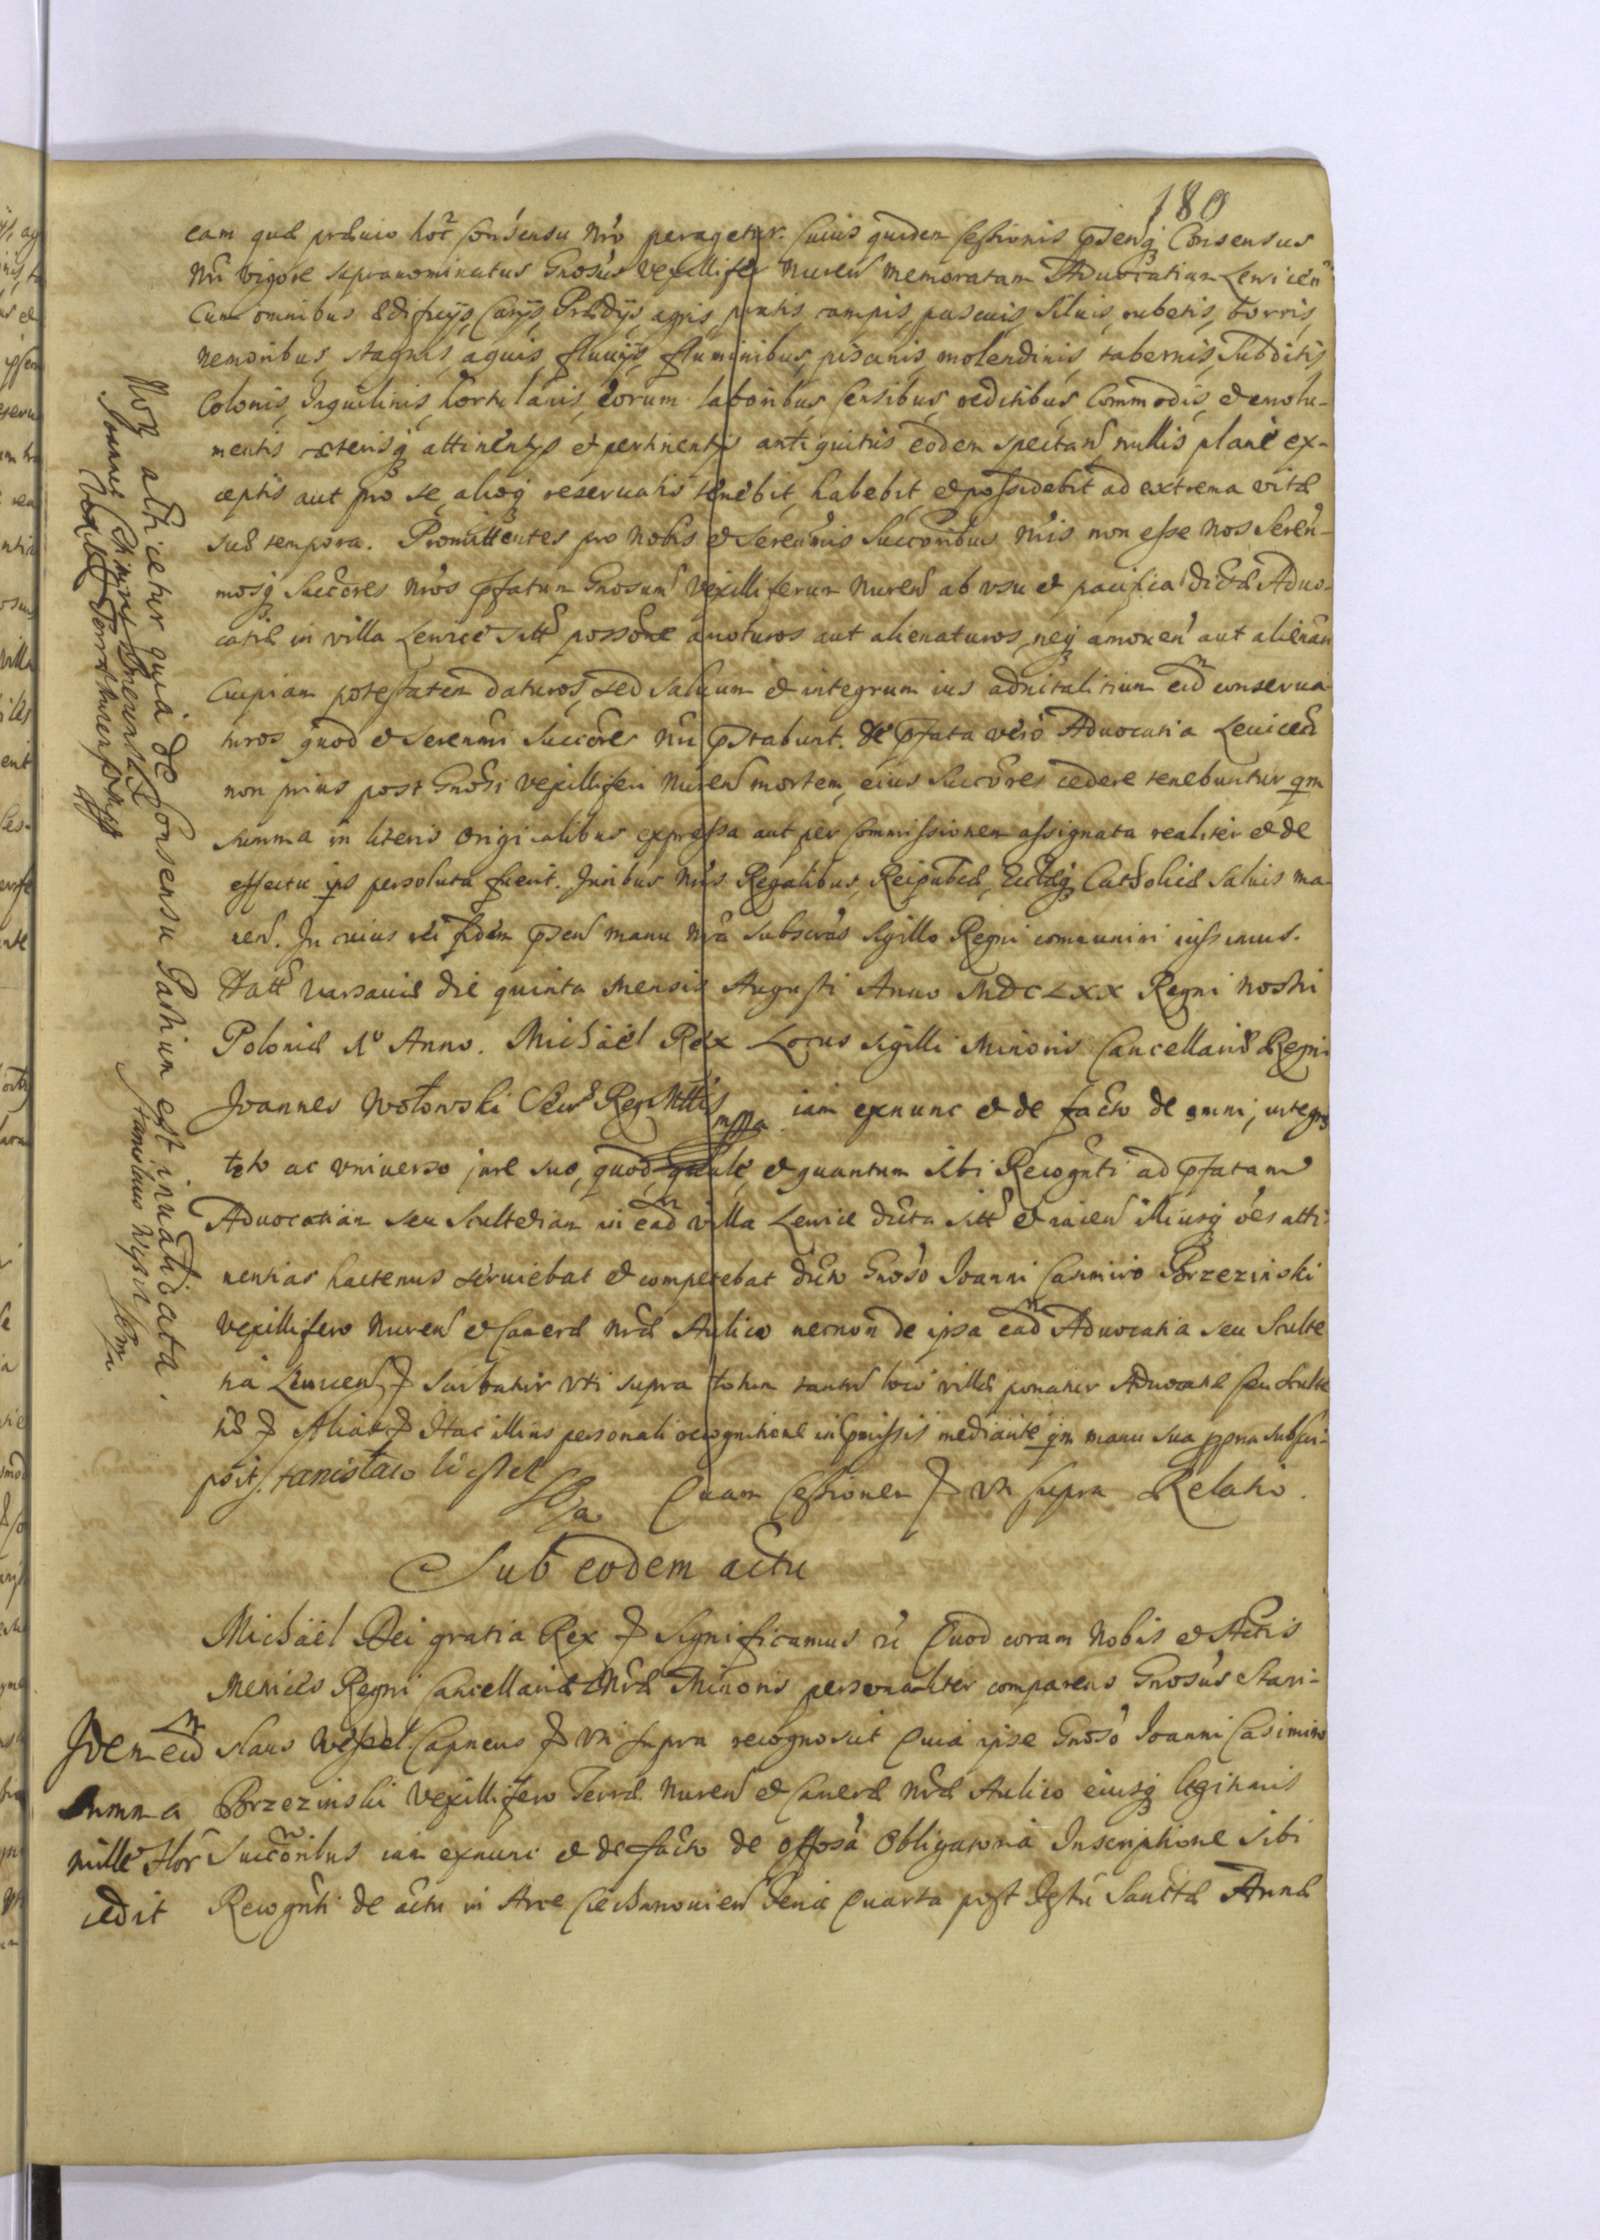 180
eam quae praevio hoc consensu nro peragetur. Cuius quidem cessionis psenq Consensus
nri vigore supranominatus Gnosus Vexillifer Nuren memoratam Advocatiam Lewicen
Cum omnibus Edificijs, Praedijs, agris, pratis, campis, pascuis, Siluis, rubetis, borris,
nemoribus, stagnis, aquis, fluuijs, fluminibus, piscinis, molendinis, tabernis, Subditis,
Colonis, Inquilinis, hortulanis, eorum laboribus censibus, reditibus, Commodis, et emolu-
mentis caeterisq attinentijs et pertinentijs antiquitus eodem spectan nullis plane ex-
ceptis aut pro se, alioq reseruatis tenebit, habebit, et possidebit ad extrema vitae
suae tempora. Promittentes pro Nobis et Serenmis Successoribus nris non esse Nos Seren-
mosq Succores nros pfatum Gnosum Vexilliferum Nuren ab vsu et pacifica dictae Aduo-
catiae in villa Lewice sitt possone amoturos aut alienaturos, neq amouen aut alienan
Cuipiam potestatem daturos, sed saluum et integrum ius aduitalitium eid conserua
turos quod et Serenmi Succores nri pstabunt. De pfata vero Advocatia Leuicen
non prius post Gnosi Vexilliferi Nuren mortem, eius Succores cedere tenebuntur qm
summa in literis originalibus expressa aut per Commissionem assignata realiter et de
effectu ips persoluta fuerit. Juribus nris Regalibus, Reipubcae, Ecclaeq Catholicae saluis ma-
nen. In cuius rei fidem psen manu nra subscras Sigillo Regni communiri iussimus.
Datt Varsauiae die quinta mensis Augusti Anno MDCLXX Regni nostri
Poloniae 1o Anno. Michaël Rex Locus sigilli Minoris Cancellariae Regni
Joannes Wołowski Regttis mppa iam exnunc et de facto de omni, integro
toto ac vniuerso jure suo, quod, quale, et quantum sibi Recognti ad pfatam
Aduocatiam seu Scultetiam in ead villa Lewice dicta sitt et iacen illiusq oes atti-
nentias hactenus seruiebat et competebat dicto Gnoso Ioanni Casimiro Brzezinski
Vexillifero Nuren et Camerae nrae Aulico necnon de ipsa ead Aduocatia seu Sculte
tia Leuicen Scribatur vti supra totum tantum loco villae ponatur Aduocatiae seu Sculte
tiae Alias Hac illius personali recognitione in pmissis mediante qm manu sua ppria subscri-
psit, Stanisław Wessel
Quam Cessionem vti supra Relatio.
Sub eodem actu
Michaël Dei gratia Rex Significamus Quod coram Nobis et Actis
Metrices Regni Cancellariae Nrae Minoris personaliter comparens Gnosus Stani-
slaus Wessel Capneus vti supra recognouit Quia ipse Gnoso Ioanni Casimiro
Brzezinski Vexillifero Terrae Nuren et Camerae nrae Aulico eiusq legitimis
Succoribus iam exnunc et de facto de Obligatoria Inscriptione sibi
Recognti de actu in Arce Ciechanouien feria Quarta post Festu Sanctae Annae
Idem eid
summa
mille flor
cedit
Non aticetur quia de Consensu Partium est inualidata.